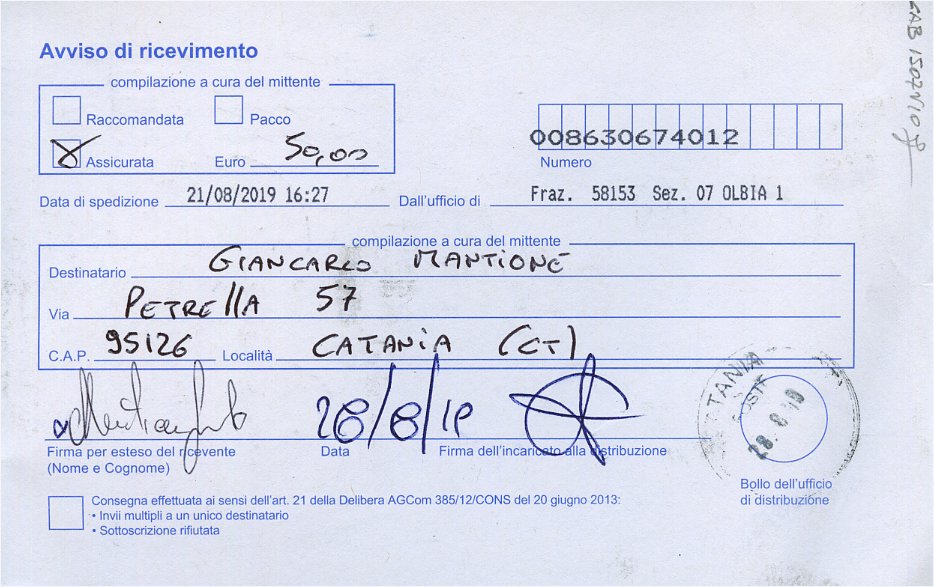 Avviso di ricevimento
compilazione a cura del mittente
Raccomandata Pacco
Assicurata Euro 50,00
008630674012
Numero
Data di spedizione 21/08/2019 16:27 Dall'ufficio di Fraz. 58153 Sez. 07 OLBIA 1
compilazione a cura del mittente
Destinatario GIANCARLO MANTIONE
Via PETRELLA 57
C.A.P. 95126 Località CATANIA (CT)
28/8/19
Firma per esteso del ricevente Data Firma dell'incaricato alla distribuzione
(Nome e Cognome)
CATANIA
POSTE
28 8 19
Bollo dell'ufficio
di distribuzione
Consegna effettuata ai sensi dell'art. 21 della Delibera AGCom 385/12/CONS del 20 giugno 2013:
• Invii multipli a un unico destinatario
• Sottoscrizione rifiutata